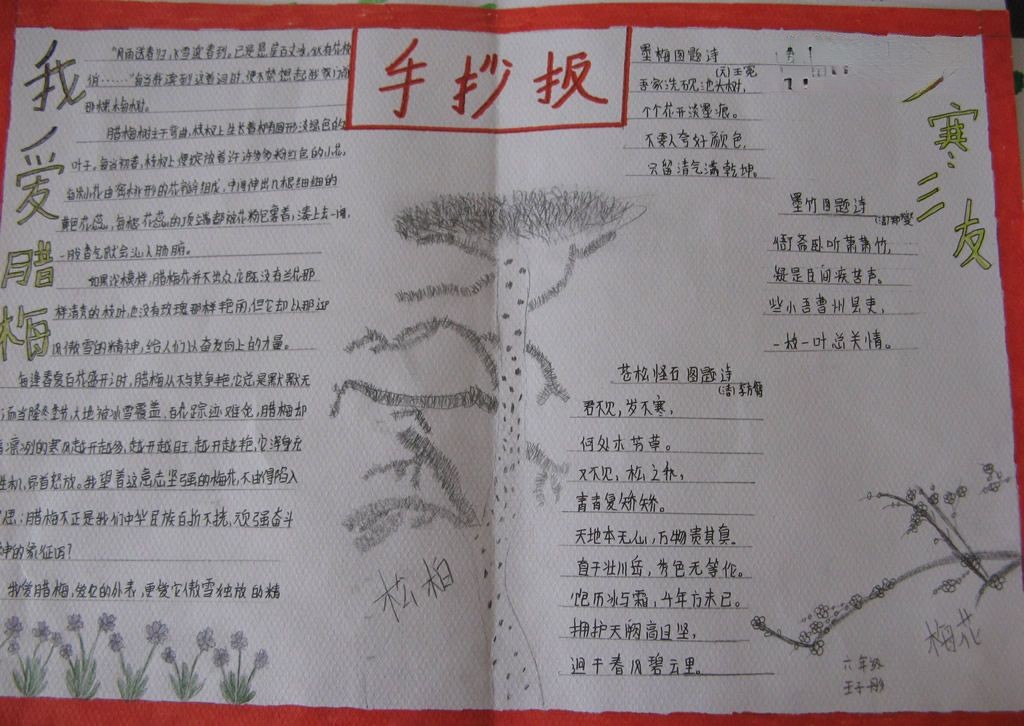 手抄报
我爱腊梅
"风雨送春归,飞雪迎春到。已是悬崖百丈冰,犹有花枝
俏……"每当我读到这首词时,便不禁想起我家门前
那棵腊梅树。
腊梅树生于弯曲,枝杈上生长着椭圆形淡绿色的
叶子。每当初春,枝杈上便绽放着许许多多粉红色的小花,
黄色花蕊,每根花蕊的顶端都被花粉包裹着,凑上去一闻,
一股香气就会沁人肺腑。
如果论模样,腊梅花并不出众,它既没有兰花那
样清秀的枝叶,也没有玫瑰那样艳丽,但它却以那迎
风傲雪的精神,给人们以奋发向上的力量。
每逢春夏百花盛开时,腊梅从不与其争艳,它总是默默无
而当隆冬季节,大地被冰雪覆盖,百花踪迹难觅,腊梅却
凛冽的寒风越开越多,越开越旺,越开越艳,它浑身充
生机,昂首怒放。我望着这意志坚强的梅花,不由得陷入
思:腊梅不正是我们中华民族百折不挠,顽强奋斗
神的象征吗?
我爱腊梅,爱它的外表,更爱它傲雪独放的精
松柏
墨梅图题诗
(元)王冕
吾家洗砚池头树,
个个花开淡墨痕。
不要人夸好颜色,
只留清气满乾坤。
寒三友
墨竹图题诗
(清)郑燮
衙斋卧听萧萧竹,
疑是民间疾苦声。
些小吾曹州县吏,
一枝一叶总关情。
苍松怪石图题诗
(清)李方膺
君不见,岁不寒,
何处求芳草。
又不见,松之乔,
青青复矫矫。
天地本无心,万物贵其真。
直干壮川岳,秀色无等伦。
饱历冰与霜,千年方未已。
拥护天阙高且坚,
迥干春风碧云里。
梅花
六年级